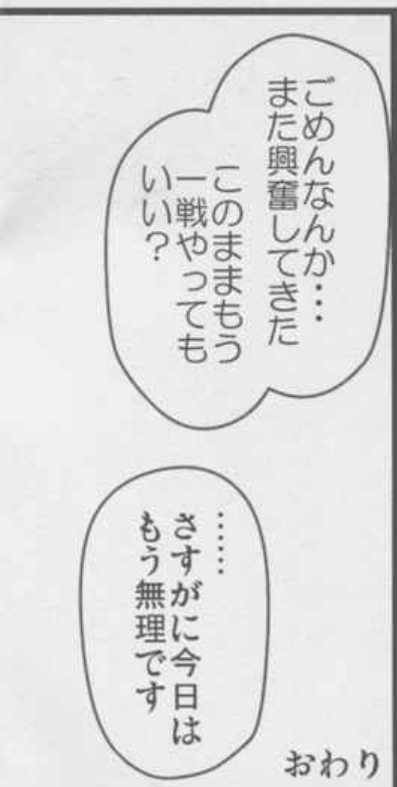 ごめんなんか・・・
また興奮してきた
このままもう
一戦やっても
いい？
……
さすがに今日は
もう無理です
おわり